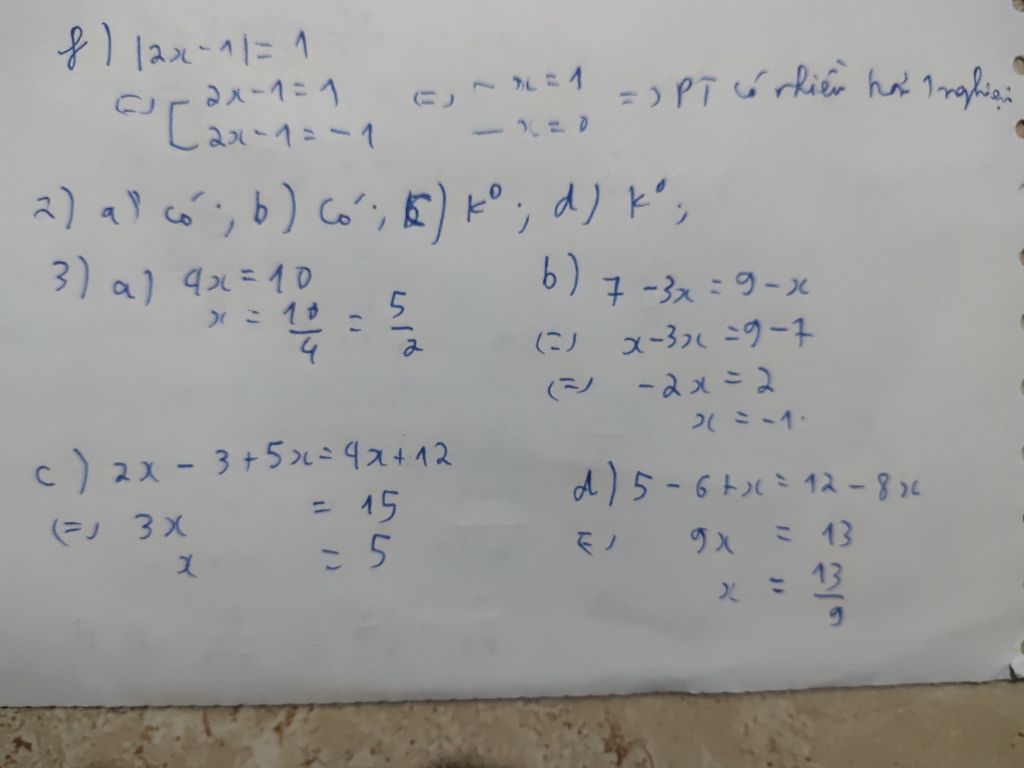 f) |2x-1| = 1
<=> [ 2x-1 = 1 <=> - x = 1 => PT có nhiều hơn 1 nghiệm
2x-1 = -1 - x = 0
2) a) có; b) có; c) k°; d) k°;
3) a) 4x = 10
x = 10/4 = 5/2
b) 7 - 3x = 9 - x
<=> x - 3x = 9 - 7
<=> -2x = 2
x = -1.
c) 2x - 3 + 5x = 4x + 12
<=> 3x = 15
x = 5
d) 5 - 6 + x = 12 - 8x
<=> 9x = 13
x = 13/9